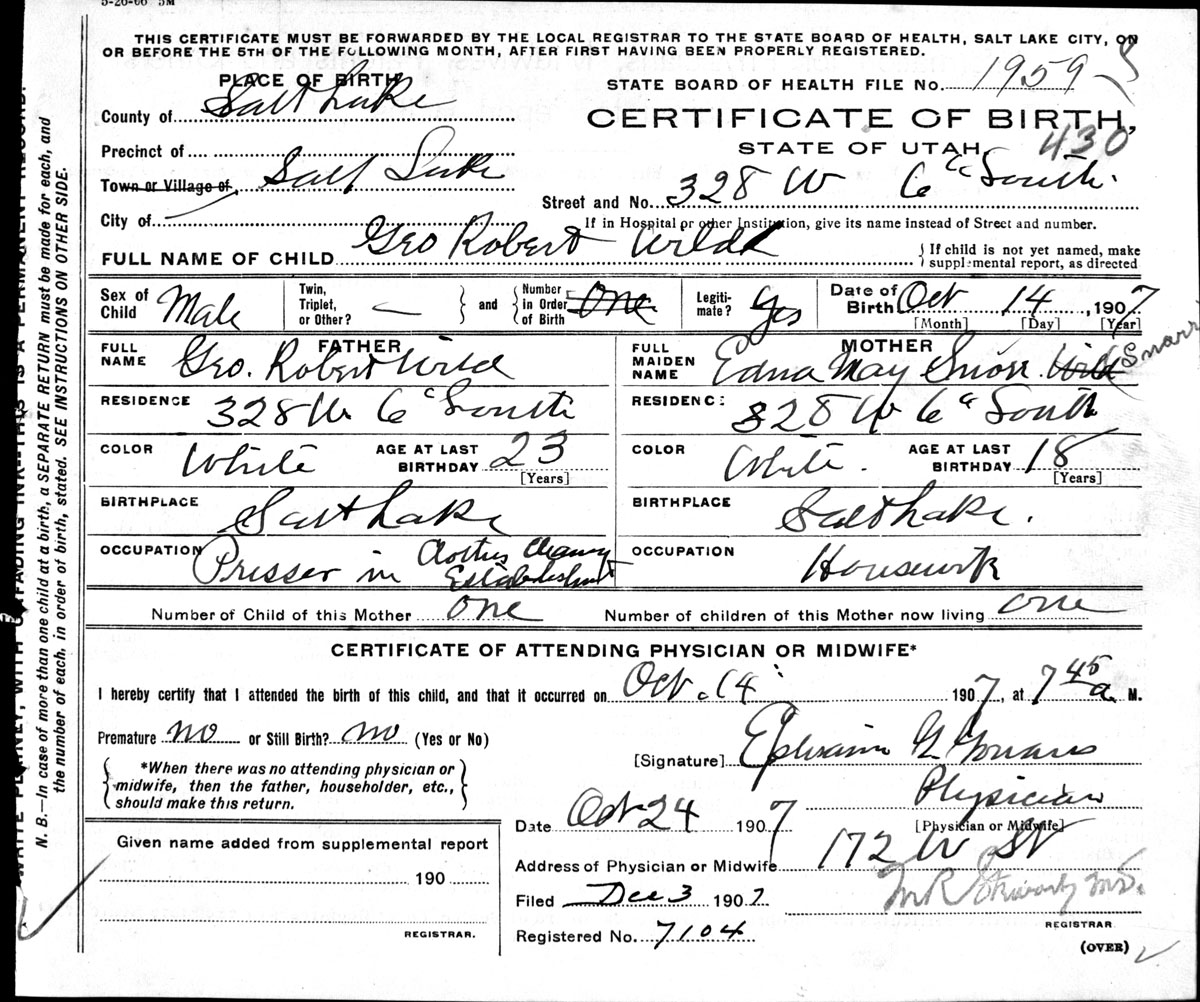 5-26-06 5M
THIS CERTIFICATE MUST BE FORWARDED BY THE LOCAL REGISTRAR TO THE STATE BOARD OF HEALTH, SALT LAKE CITY, ON
OR BEFORE THE 5TH OF THE FOLLOWING MONTH, AFTER FIRST HAVING BEEN PROPERLY REGISTERED.
PLACE OF BIRTH
STATE BOARD OF HEALTH FILE No. 1959
County of Salt Lake
CERTIFICATE OF BIRTH,
STATE OF UTAH. 430
Precinct of
Town or Village of Salt Lake
Street and No. 328 W 6th South.
City of
If in Hospital or other Institution, give its name instead of Street and number.
FULL NAME OF CHILD Geo Robert Wild
If child is not yet named, make
supplemental report, as directed
Sex of Child Male
Twin, Triplet, or Other? —
and
Number in Order of Birth One
Legitimate? Yes
Date of Birth Oct 14, 1907
[Month] [Day] [Year]
FATHER
FULL NAME Geo. Robert Wild
RESIDENCE 328 W 6th South
COLOR White
AGE AT LAST BIRTHDAY 23
[Years]
BIRTHPLACE Salt Lake
OCCUPATION Presser in Clothes Cleaning Establishment
MOTHER
FULL MAIDEN NAME Edna May Snarr Wild Snarr
RESIDENCE 328 W 6th South
COLOR White.
AGE AT LAST BIRTHDAY 18
[Years]
BIRTHPLACE Salt Lake.
OCCUPATION Housework
Number of Child of this Mother One
Number of children of this Mother now living one
CERTIFICATE OF ATTENDING PHYSICIAN OR MIDWIFE*
I hereby certify that I attended the birth of this child, and that it occurred on Oct. 14 1907, at 7 45 a. M.
Premature no or Still Birth? no (Yes or No)
[Signature] Ephraim G Gowans
*When there was no attending physician or
midwife, then the father, householder, etc.,
should make this return.
Physician
[Physician or Midwife]
Date Oct 24 1907
Address of Physician or Midwife 172 W St
Filed Dec 3 1907
REGISTRAR
Registered No. 7104
(OVER)
Given name added from supplemental report
190
REGISTRAR.
WRITE PLAINLY, WITH UNFADING INK—THIS IS A PERMANENT RECORD.
N. B.—In case of more than one child at a birth, a SEPARATE RETURN must be made for each, and
the number of each, in order of birth, stated. SEE INSTRUCTIONS ON OTHER SIDE.